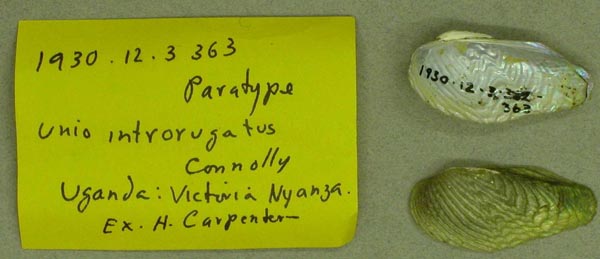 1930.12.3 363
Paratype
Unio introrugatus
Connolly
Uganda: Victoria Nyanza.
Ex. H. Carpenter
1930.12.3.362-
363